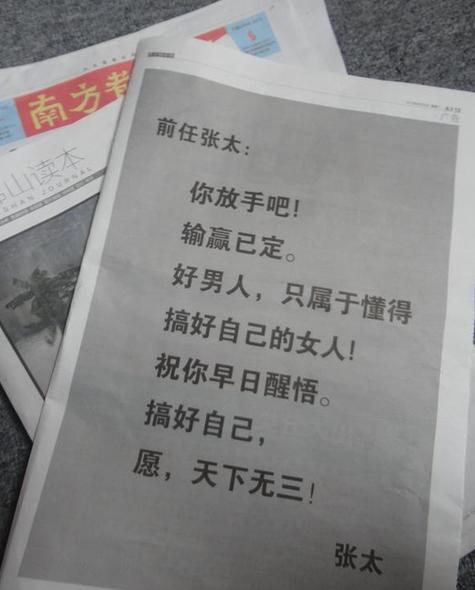 南方都
山读本
SHAN JOURNAL
广告
前任张太：
你放手吧！
输赢已定。
好男人，只属于懂得
搞好自己的女人！
祝你早日醒悟。
搞好自己，
愿，天下无三！
张太